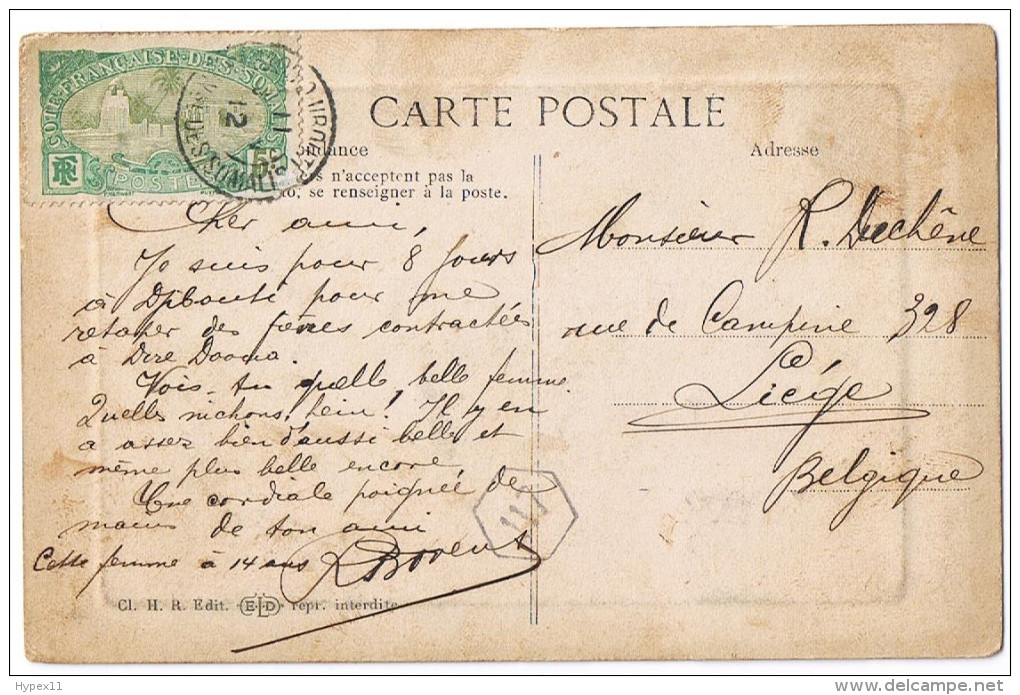 CÔTE FRANÇAISE DES SOMALIS
POSTES
5c
12
11
CARTE POSTALE
ondance
Adresse
rs n'acceptent pas la
se renseigner à la poste.
Cher ami,
Je suis pour 8 jours
à Djibouti pour me
retaper des fièvres contractées
à Dire Daoua.
Vois-tu quelle belle femme
Quelles nichons hein! Il y en
a assez bien d'aussi belle et
même plus belle encore.
Une cordiale poignée de
mains de ton ami
Cette femme à 14 ans
Monsieur R. Duchêne
rue de Campine 328
Liége
Belgique
Cl. H. R. Edit. ELD repr. interdite
Hypex11
www.delcampe.net